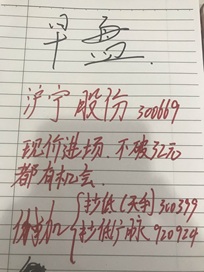 早盘.
沪宁股份 300669
现价进场. 不破32元
都有机会.
抄底(天利) 300399
抄底广脉 920924